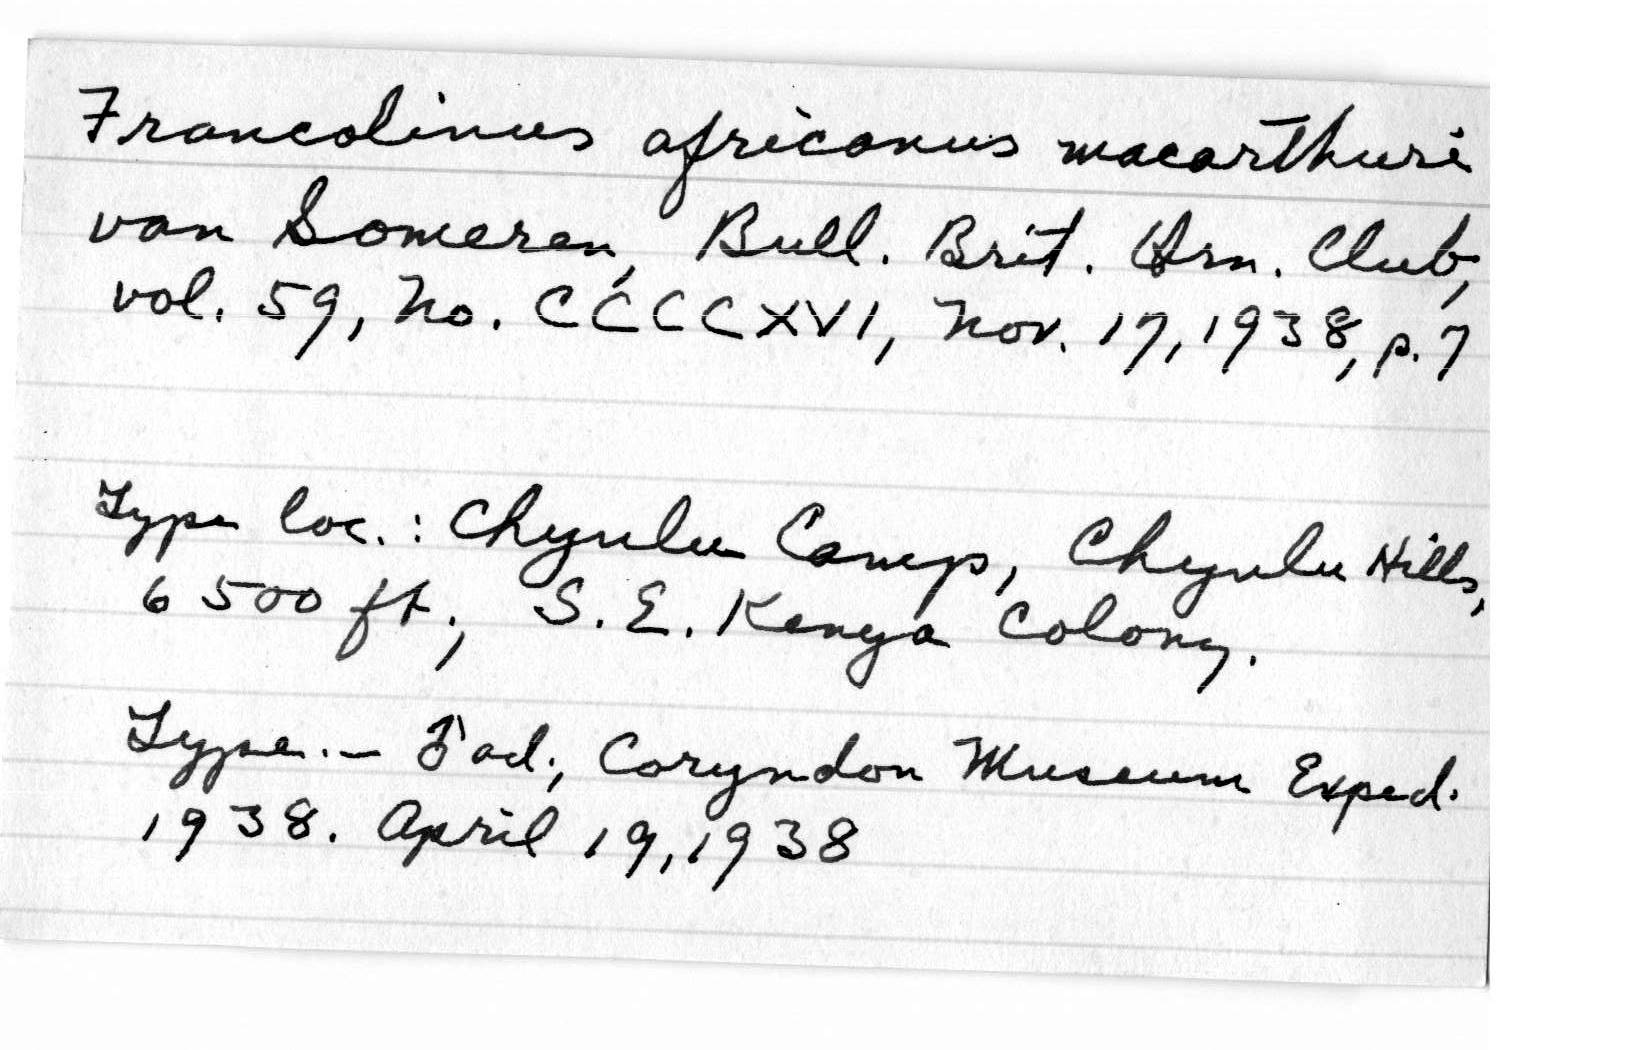 Francolinus africanus macarthuri
van Someren, Bull. Brit. Orn. Club,
vol. 59, No. CCCCXVI, Nov. 17, 1938, p. 7
Type loc.: Chyulu Camp, Chyulu Hills,
6500 ft., S. E. Kenya Colony.
Type.— ad., Coryndon Museum Exped.
1938. April 19, 1938